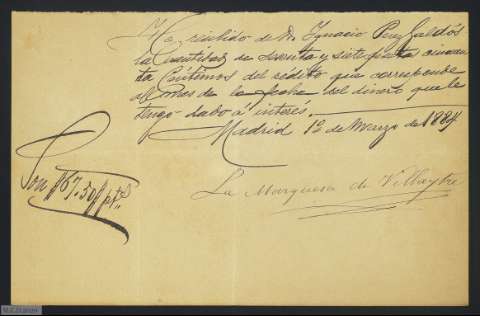 He recibido de Dn Ygnacio Perez Galdós
la Cantidad de sesenta y siete pesetas cincuen
ta Centimos del rédito que corresponde
al mes de la fecha del dinero que le
tengo dado á interés.
Madrid 12 de Marzo de 1884
Son # 67.50 # pts
La Marquesa de Villaytre